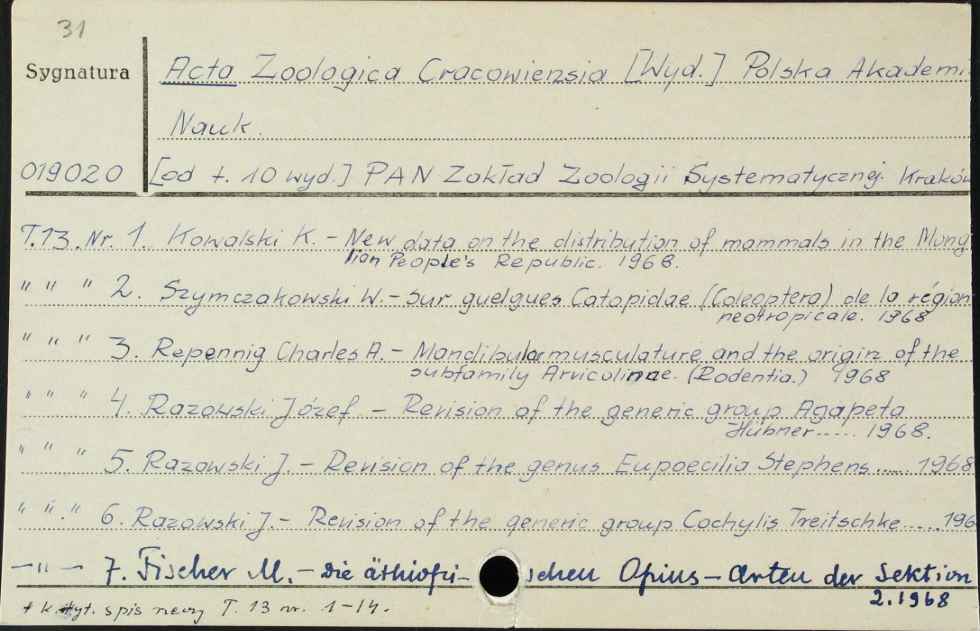 31
Sygnatura
Acta Zoologica Cracowiensia [Wyd.] Polska Akademi
Nauk.
019020 [od t. 10 wyd.] PAN Zakład Zoologii Systematycznej. Kraków
T.13. Nr. 1. Kowalski K. - New data on the distribution of mammals in the Mong
lian People's Republic. 1968.
" " " 2. Szymczakowski W. - Sur guelgues Catopidae (Coleoptera) de la région
neotropicale. 1968
" " " 3. Repennig Charles A. - Mandibular musculature and the origin of the
subfamily Arvicolinae. (Rodentia.) 1968
" " " 4. Razowski Józef - Revision of the generic group Agapeta
Hübner..... 1968.
" " " 5. Razowski J. - Revision of the genus Eupoecilia Stephens..... 1968
" " " 6. Razowski J. - Revision of the generic group Cochylis Treitschke.... 196
-"- 7. Fischer M. - Die äthiopi- schen Opius - Arten der Sektion
2.1968
spis T. 13 nr. 1-14.